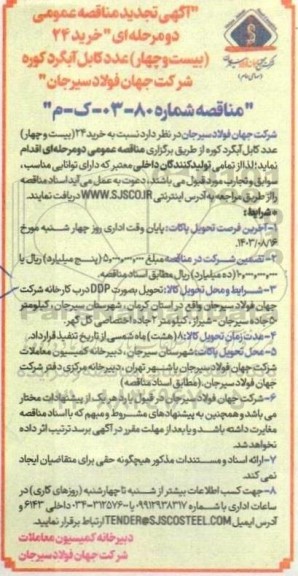 "آگهی تجدید مناقصه عمومی
دو مرحله ای "خرید ۲۴
(بیست و چهار) عدد کابل آبگرد کوره
شرکت جهان فولاد سیرجان"
"مناقصه شماره ۸۰-۰۳-ک-م"
شرکت جهان فولاد سیرجان در نظر دارد نسبت به خرید ۲۴ (بیست و چهار)
عدد کابل آبگرد کوره از طریق برگزاری مناقصه عمومی دو مرحله ای اقدام
نماید؛ لذا از تمامی تولیدکنندگان داخلی معتبر که دارای توانایی مناسب،
سوابق و تجارب مورد قبول می باشند، دعوت به عمل می آید اسناد مناقصه
را از طریق مراجعه به آدرس اینترنتی WWW.SJSCO.IR دریافت نمایند.
*شرایط:
۱-آخرین فرصت تحویل پاکات: پایان وقت اداری روز چهار شنبه مورخ
۱۴۰۳/۰۸/۱۶.
۲-تضمین شرکت در مناقصه مبلغ ۵,۰۰۰,۰۰۰,۰۰۰ (پنج میلیارد) ریال یا
۱۰,۰۰۰,۰۰۰,۰۰۰ (ده میلیارد) ریال مطابق اسناد مناقصه.
۳-شرایط و محل تحویل کالا: تحویل بصورت DDP درب کارخانه شرکت
جهان فولاد سیرجان واقع در استان کرمان، شهرستان سیرجان، کیلومتر
۵۰ جاده سیرجان - شیراز، کیلومتر ۲ جاده اختصاصی گل گهر.
۴-مدت زمان تحویل کالا: ۸ (هشت) ماه شمسی از تاریخ تنفیذ قرارداد.
۵-محل تحویل پاکات: شهرستان سیرجان، دبیرخانه کمیسیون معاملات
شرکت جهان فولاد سیرجان یا شهر تهران، دبیرخانه مرکزی دفتر شرکت
جهان فولاد سیرجان. (مطابق اسناد مناقصه)
۶-شرکت جهان فولاد سیرجان در قبول یا رد هر یک از پیشنهادات مختار
می باشد و همچنین به پیشنهادهای مشروط و مبهم که با اسناد مناقصه
مغایرت داشته باشد و یا بعد از مهلت مقرر در آگهی برسد ترتیب اثر داده
نخواهد شد.
۷-ارائه اسناد و مستندات مذکور هیچگونه حقی برای متقاضیان ایجاد
نمی کند.
۸-جهت کسب اطلاعات بیشتر از شنبه تا چهارشنبه (روزهای کاری) در
ساعات اداری با شماره ۰۹۹۱۲۹۳۸۳۱۷ یا ۰۳۴-۳۱۲۵۷۶۰۰ داخلی ۶۱۴۳ و
آدرس ایمیل TENDER@SJSCOSTEEL.COM ارتباط برقرار نمایید.
دبیرخانه کمیسیون معاملات
شرکت جهان فولاد سیرجان